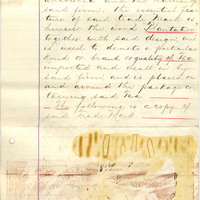 said firm. The essential fea-
ture of said trade Mark is
however the word Plantation
together with said design and
is used to denote a particular
kind or brand or quality of Tea
imported and dealt in by
said firm, and is placed on
and around the package con-
taining said Tea
The following is a copy of
said Trade Mark